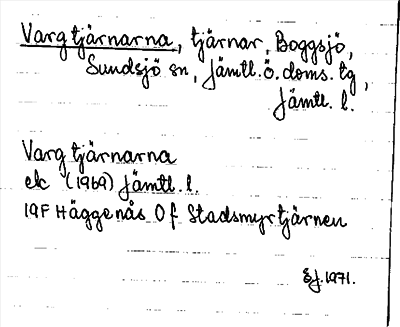 Vargtjärnarna, tjärnar, Boggsjö,
Sundsjö sn, Jämtl. Ö. doms. tg,
Jämtl. l.
Vargtjärnarna
ek (1969) Jämtl. l.
19F Häggenås 0f Stadsmyrtjärnen
1971.